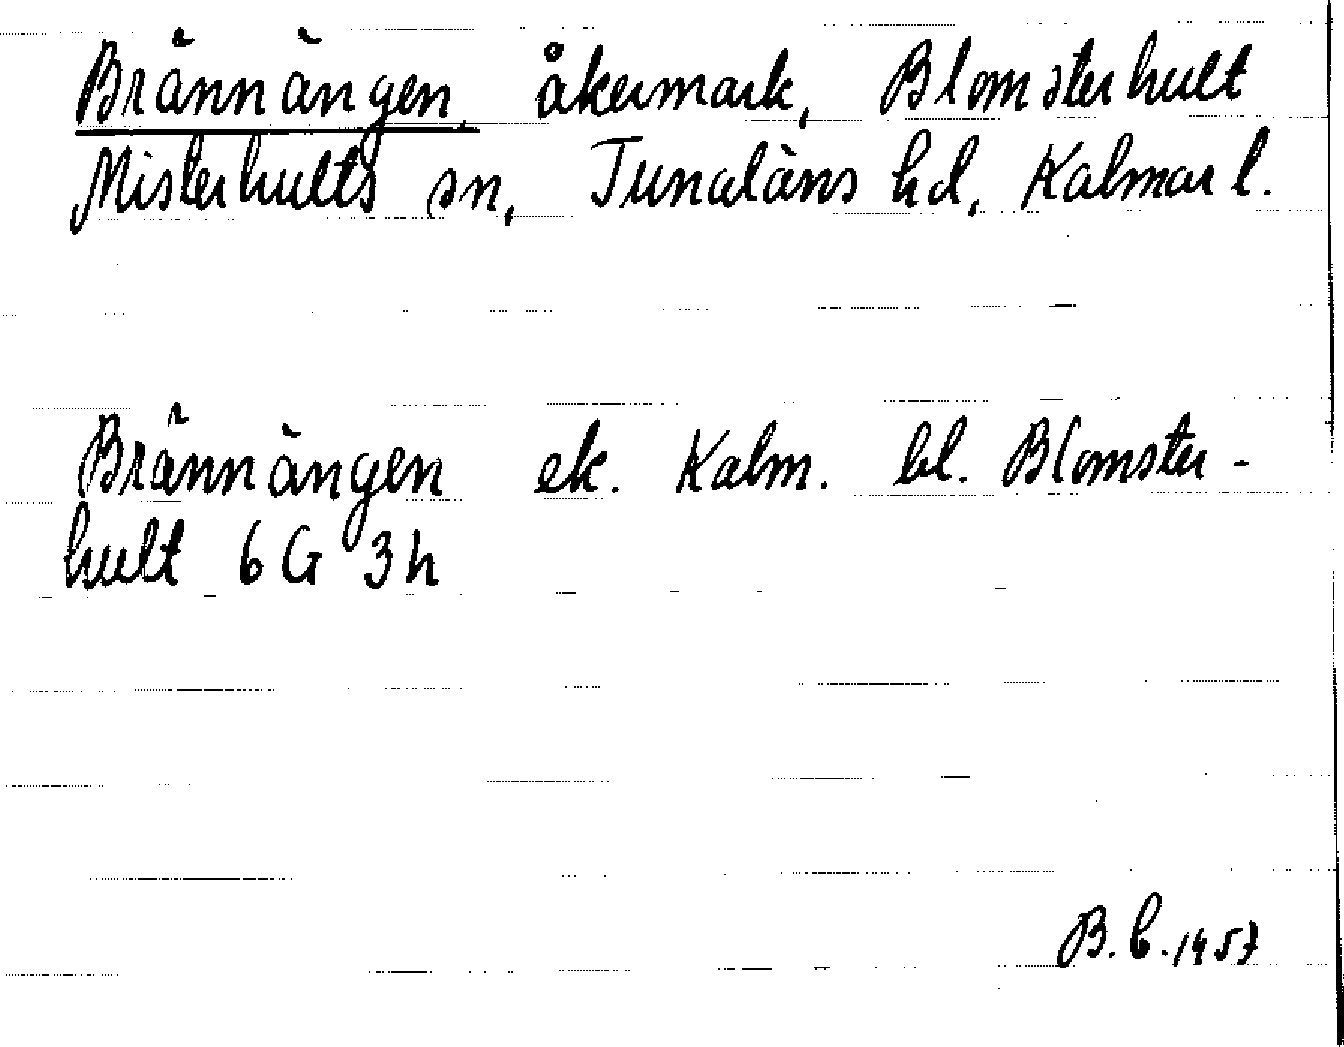 Brännängen, åkermark, Blomsterhult
Misterhults sn, Tunaläns hd, Kalmar l.
Brännängen ek. Kalm. bl. Blomster-
hult 6 G 3h
B. C. 1957